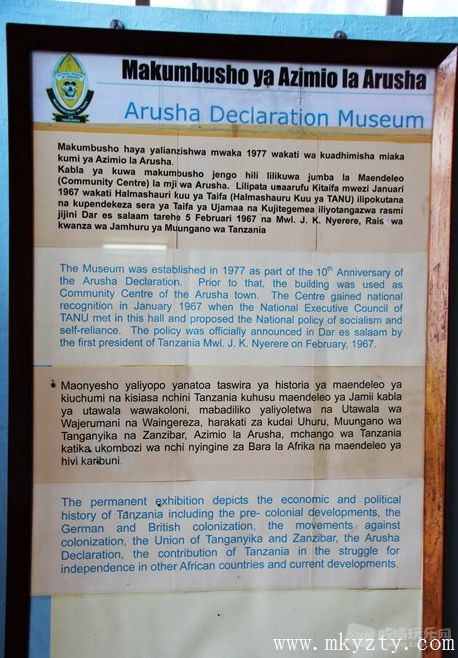 Makumbusho ya Azimio la Arusha
Arusha Declaration Museum
Makumbusho haya yalianzishwa mwaka 1977 wakati wa kuadhimisha miaka
kumi ya Azimio la Arusha.
Kabla ya kuwa makumbusho jengo hili lilikuwa jumba la Maendeleo
(Community Centre) la mji wa Arusha. Lilipata umaarufu Kitaifa mwezi Januari
1967 wakati Halmashauri kuu ya Taifa (Halmashauru Kuu ya TANU) ilipokutana
na kupendekeza sera ya Taifa ya Ujamaa na Kujitegemea iliyotangazwa rasmi
jijini Dar es salaam tarehe 5 Februari 1967 na Mwl. J. K. Nyerere, Rais wa
kwanza wa Jamhuru ya Muungano wa Tanzania
The Museum was established in 1977 as part of the 10th Anniversary of
the Arusha Declaration. Prior to that, the building was used as
Community Centre of the Arusha town. The Centre gained national
recognition in January 1967 when the National Executive Council of
TANU met in this hall and proposed the National policy of socialism and
self-reliance. The policy was officially announced in Dar es salaam by
the first president of Tanzania Mwl. J. K. Nyerere on February, 1967.
Maonyesho yaliyopo yanatoa taswira ya historia ya maendeleo ya
kiuchumi na kisiasa nchini Tanzania kuhusu maendeleo ya Jamii kabla
ya utawala wawakoloni, mabadiliko yaliyoletwa na Utawala wa
Wajerumani na Waingereza, harakati za kudai Uhuru, Muungano wa
Tanganyika na Zanzibar, Azimio la Arusha, mchango wa Tanzania
katika ukombozi wa nchi nyingine za Bara la Afrika na maendeleo ya
hivi karibuni.
The permanent exhibition depicts the economic and political
history of Tanzania including the pre- colonial developments, the
German and British colonization, the movements against
colonization, the Union of Tanganyika and Zanzibar, the Arusha
Declaration, the contribution of Tanzania in the struggle for
independence in other African countries and current developments.
www.mkyzty.com